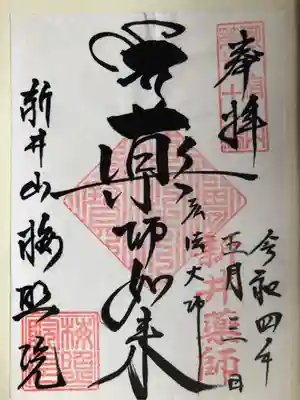 奉拝
令和四年
月
日
新井薬師
弘法大師
薬師如来
新井山梅照院